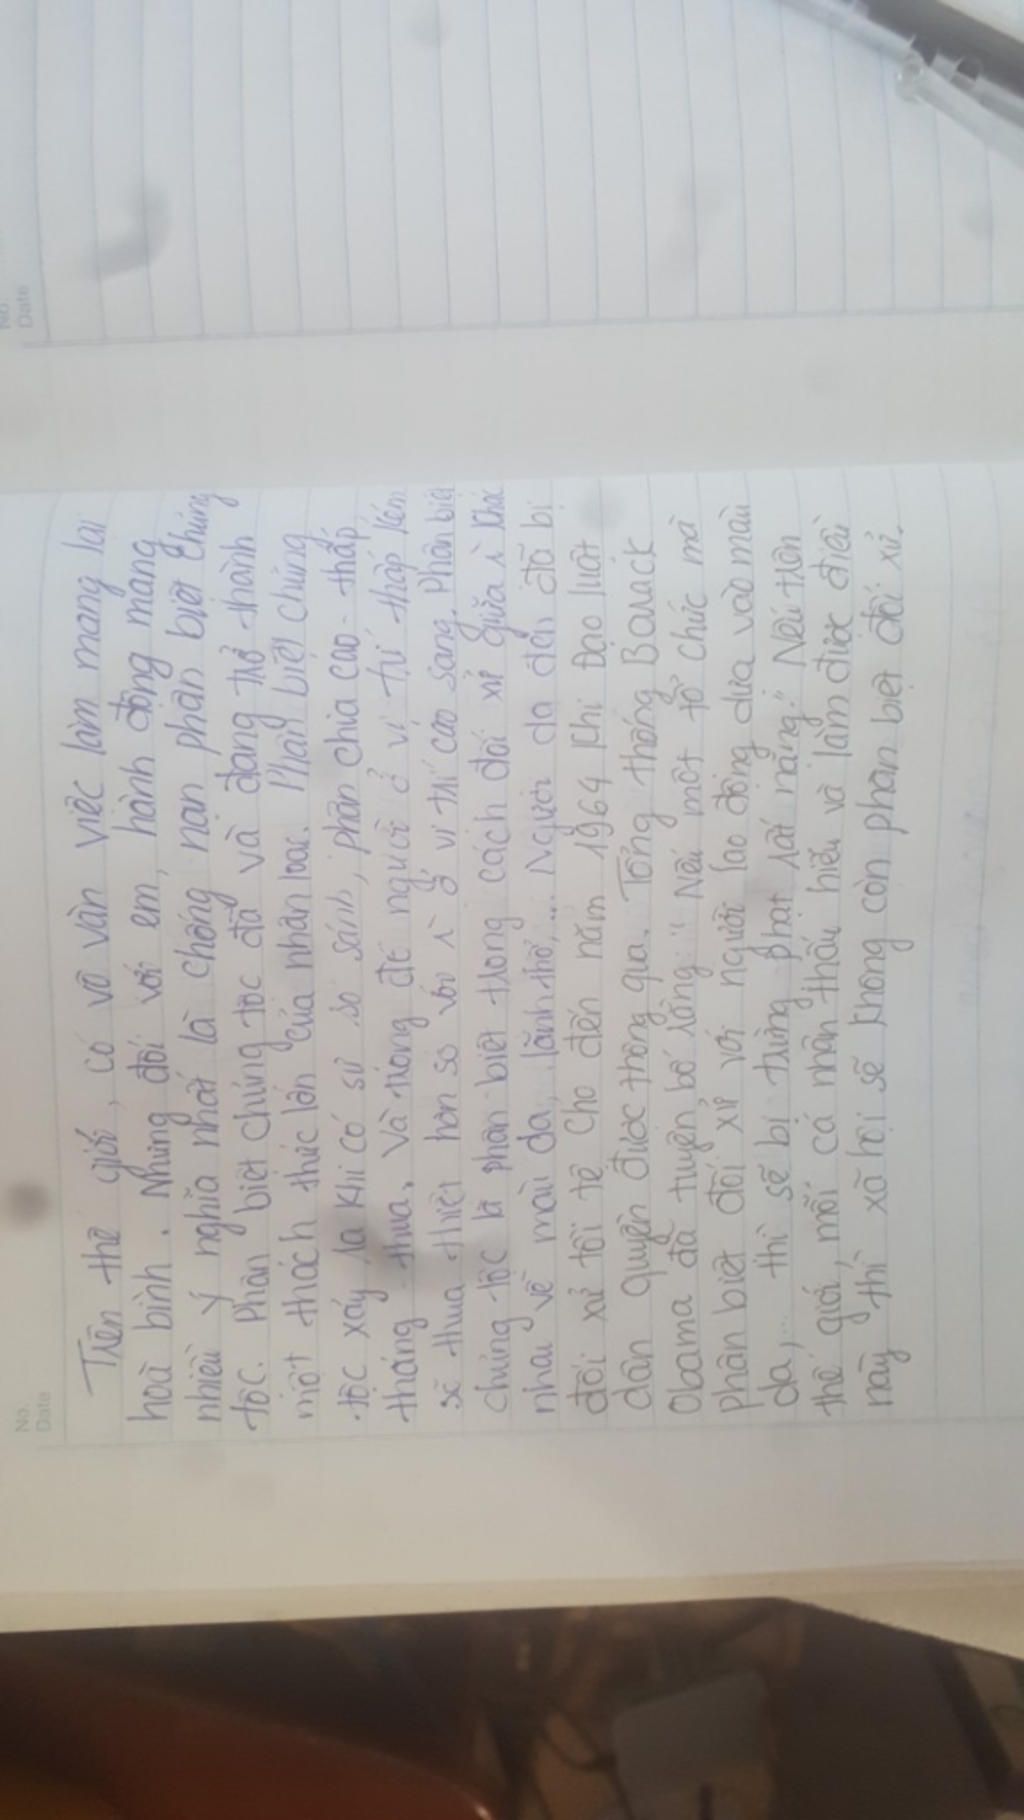 No.
Date
Trên thế giới, có vô vàn việc làm mang lại
hoà bình. Nhưng đối với em, hành động mang
nhiều ý nghĩa nhất là chống nạn phân biệt chủng
tộc. Phân biệt chủng tộc đã và đang trở thành
một thách thức lớn của nhân loại. Phân biệt chủng
tộc xảy ra khi có sự so sánh, phân chia cao - thấp,
thắng - thua. Và trong đó người ở vị trí thấp kém
sẽ thua thiệt hơn so với ở vị trí cao sang. Phân biệt
chủng tộc là phân biệt trong cách đối xử giữa khác
nhau về màu da, lãnh thổ,... Người da đen đã bị
đối xử tồi tệ cho đến năm 1964 khi Đạo luật
dân quyền được thông qua. Tổng thống Barack
Obama đã tuyên bố rằng: "Nếu một tổ chức mà
phân biệt đối xử với người lao động dựa vào màu
da,... thì sẽ bị trừng phạt rất nặng." Nếu trên
thế giới, mỗi cá nhân thấu hiểu và làm được điều
này thì xã hội sẽ không còn phân biệt đối xử.
No.
Date